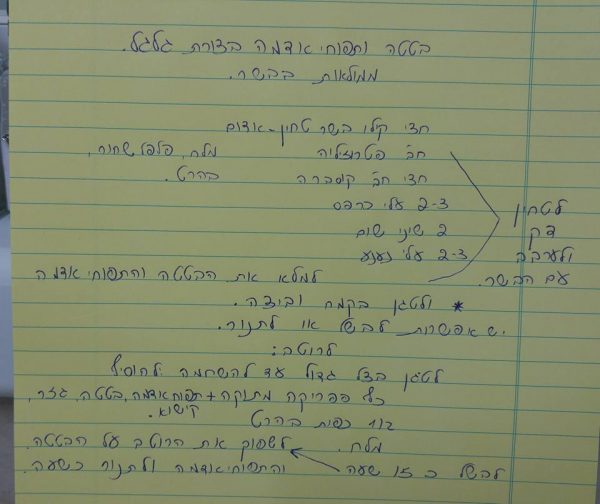 בטטה ותפוחי אדמה בצורת גלגל.
ממולאות בבשר.
חצי קילו בשר טחון - אדום
חב' פטרוזיליה מלח, פלפל שחור,
חצי חב' קוסברה בהרט.
2-3 עלי כרפס
2 שיני שום
2-3 עלי נענע
לטחון
דק
ולערבב
עם הבשר.
למלא את הבטטה והתפוחי אדמה
* ולטגן בקמח וביצה.
יש אפשרות לבשל או לתנור.
לרוטב:
לטגן בצל גדול עד להשחמה ולהוסיף
כף פפריקה מתוקה + תפוח אדמה, בטטה, גזר,
קישוא.
1/2 כפית בהרט
מלח. לשפוך את הרוטב על הבטטה
לבשל כ 15 שעה והתפוחי אדמה ולתנור כשעה.